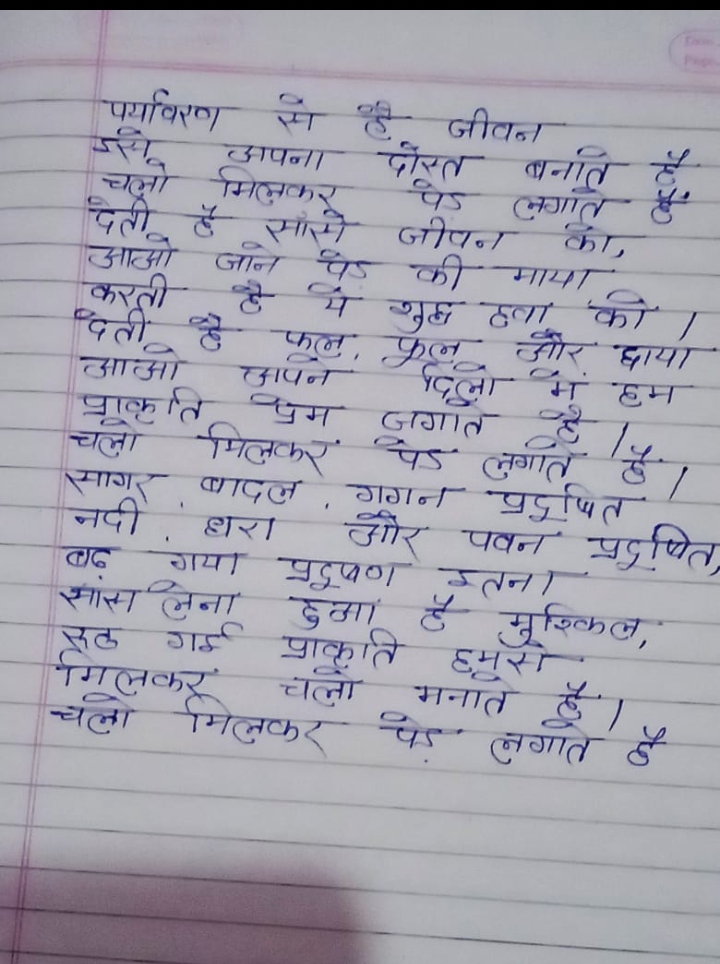 पर्यावरण से है जीवन
उसे अपना दोस्त बनाते है
चलो मिलकर पेड लगाते हैं
देती है साँसे जीवन को,
आओ जाने पेड की माया
करती है ये शुद्ध हवा को ।
देती है फल, फूल और छाया
आओ अपने दिलो में हम
प्राकृति प्रेम जगाते है ।
चलो मिलकर पेड लगाते है ।
सागर, बादल, गगन प्रदूषित
नदी, धरा और पवन प्रदूषित,
बढ़ गया प्रदूषण इतना
सांस लेना हुआ है मुश्किल,
रूठ गई प्राकृति हमसे
मिलकर चलो मनाते है ।
चलो मिलकर पेड़ लगाते है